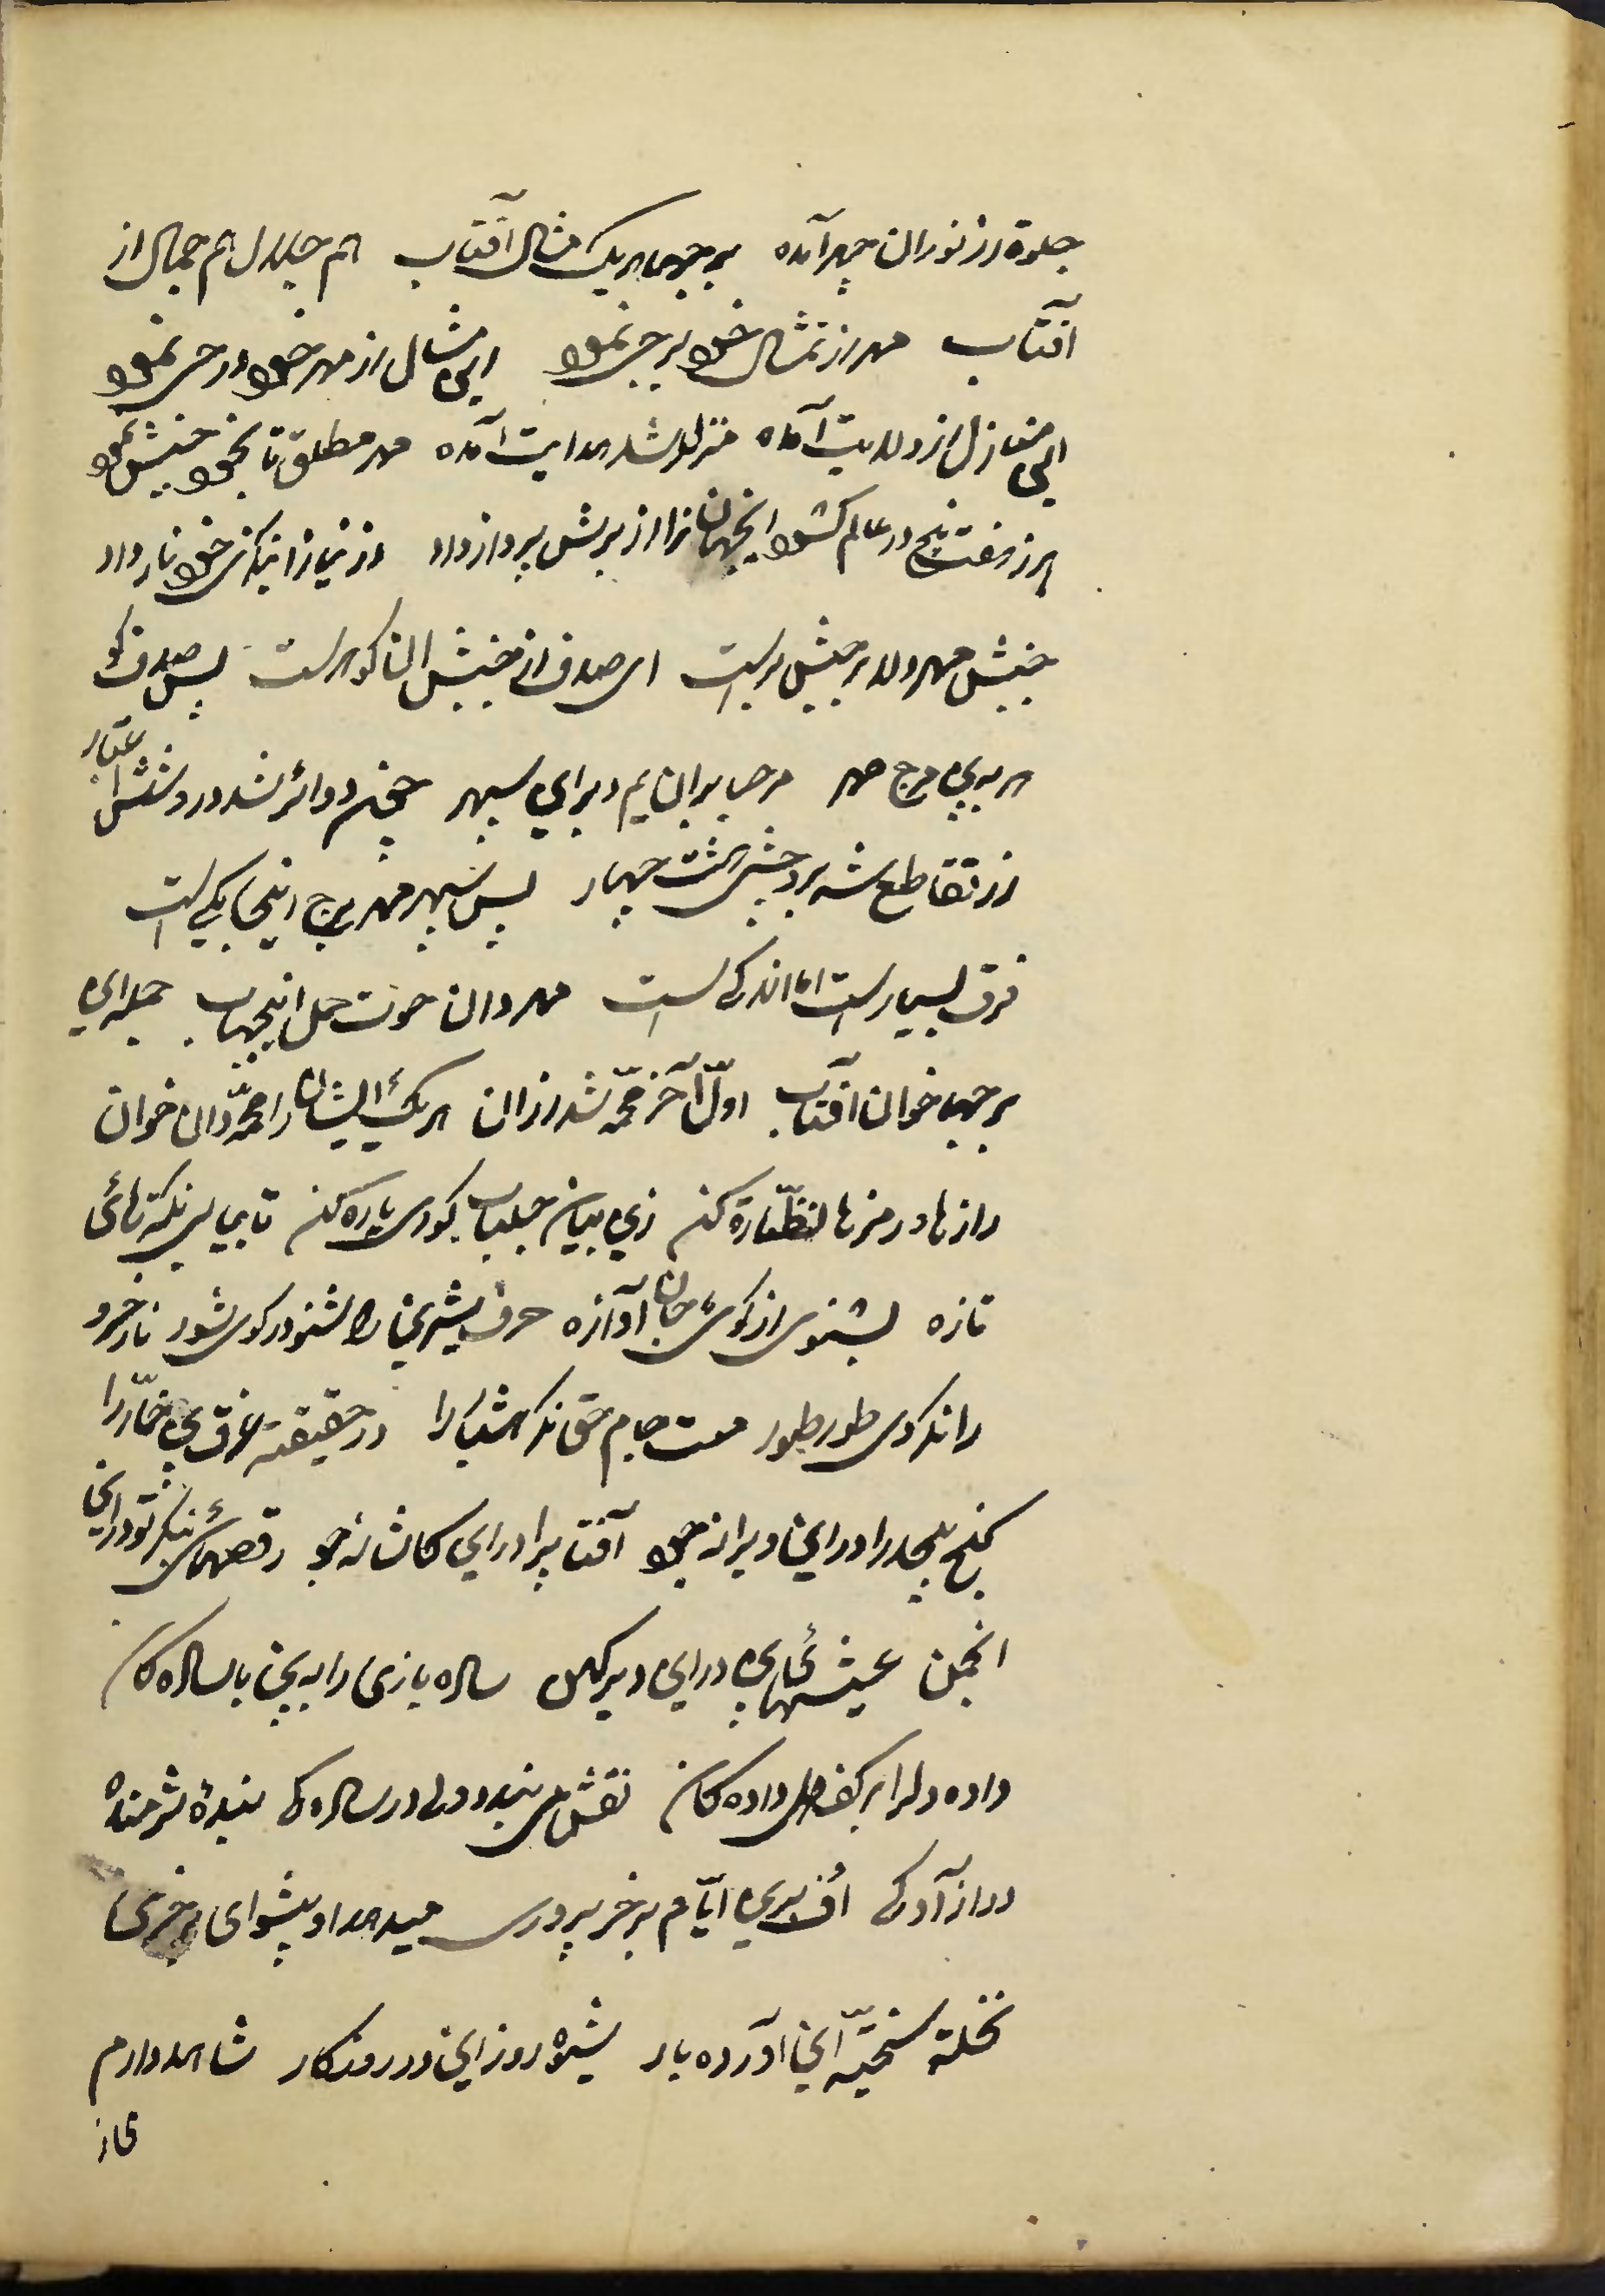 جلوۀ از نور ان چهر آمده برجها هریک مثال آفتاب هم جلال هم جمال از
آفتاب مهر از تمثال خود برجی نمود این مثال از مهر خود درجی نمود
این منازل از ولایت آمده منزل رشد هدایت آمده مهر مطلق تا بخود جنبش نمود
هر ز هفت پنج در عالم کشود اینجهان را از برش پرداز داد از نیاز اینکزی خود ناز داد
جنبش مهر ولا بر جنبش برست این صدف از جنبش ان گوهرست پس صدف گو
هر به بین برج مهر مرحبا بر ان یم و بر این سپهر چون دوائر شد در روشش اعتبار
از تقاطع شد بروجش هشت چهار پس سپهر مهر برج اینجا یکی است
فرق بسیار است اما اندکی است مهر دان حوت حمل اینجها جمله این
برجها خوان آفتاب اول آخر محمد شد از ان هریک ایشان را محمد دان خوان
رازها و رمزها نظّاره کن زین بیان جلباب کوری پاره کن تا بیابی نکته‌های
تازه بشنوی از کوی جان آوازه حرف شیرین را شنو در کوی شور نار خرو
را نکردی طور طور مست جام حق نگر هشیار را در حقیقت غرق بین خمّار را
گنج بیحد را در این ویرانه جو آفتابی را در این کاشانه جو رقصهائی بنگر تو در این
انجمن عیشهائی بین در این دیر کهن ساده بازی را به بین با سادگان
داده دل را بر کف دل دادگان نقش می بندد ولی در سادگی بندۀ شرمنده
در آزادگی اف برین ایّام بر خر پروری میدهد او پیشوای بر خری
نخلۀ سختیّه این آورده بار شیوۀ روز این در روزگار شاهد دارم